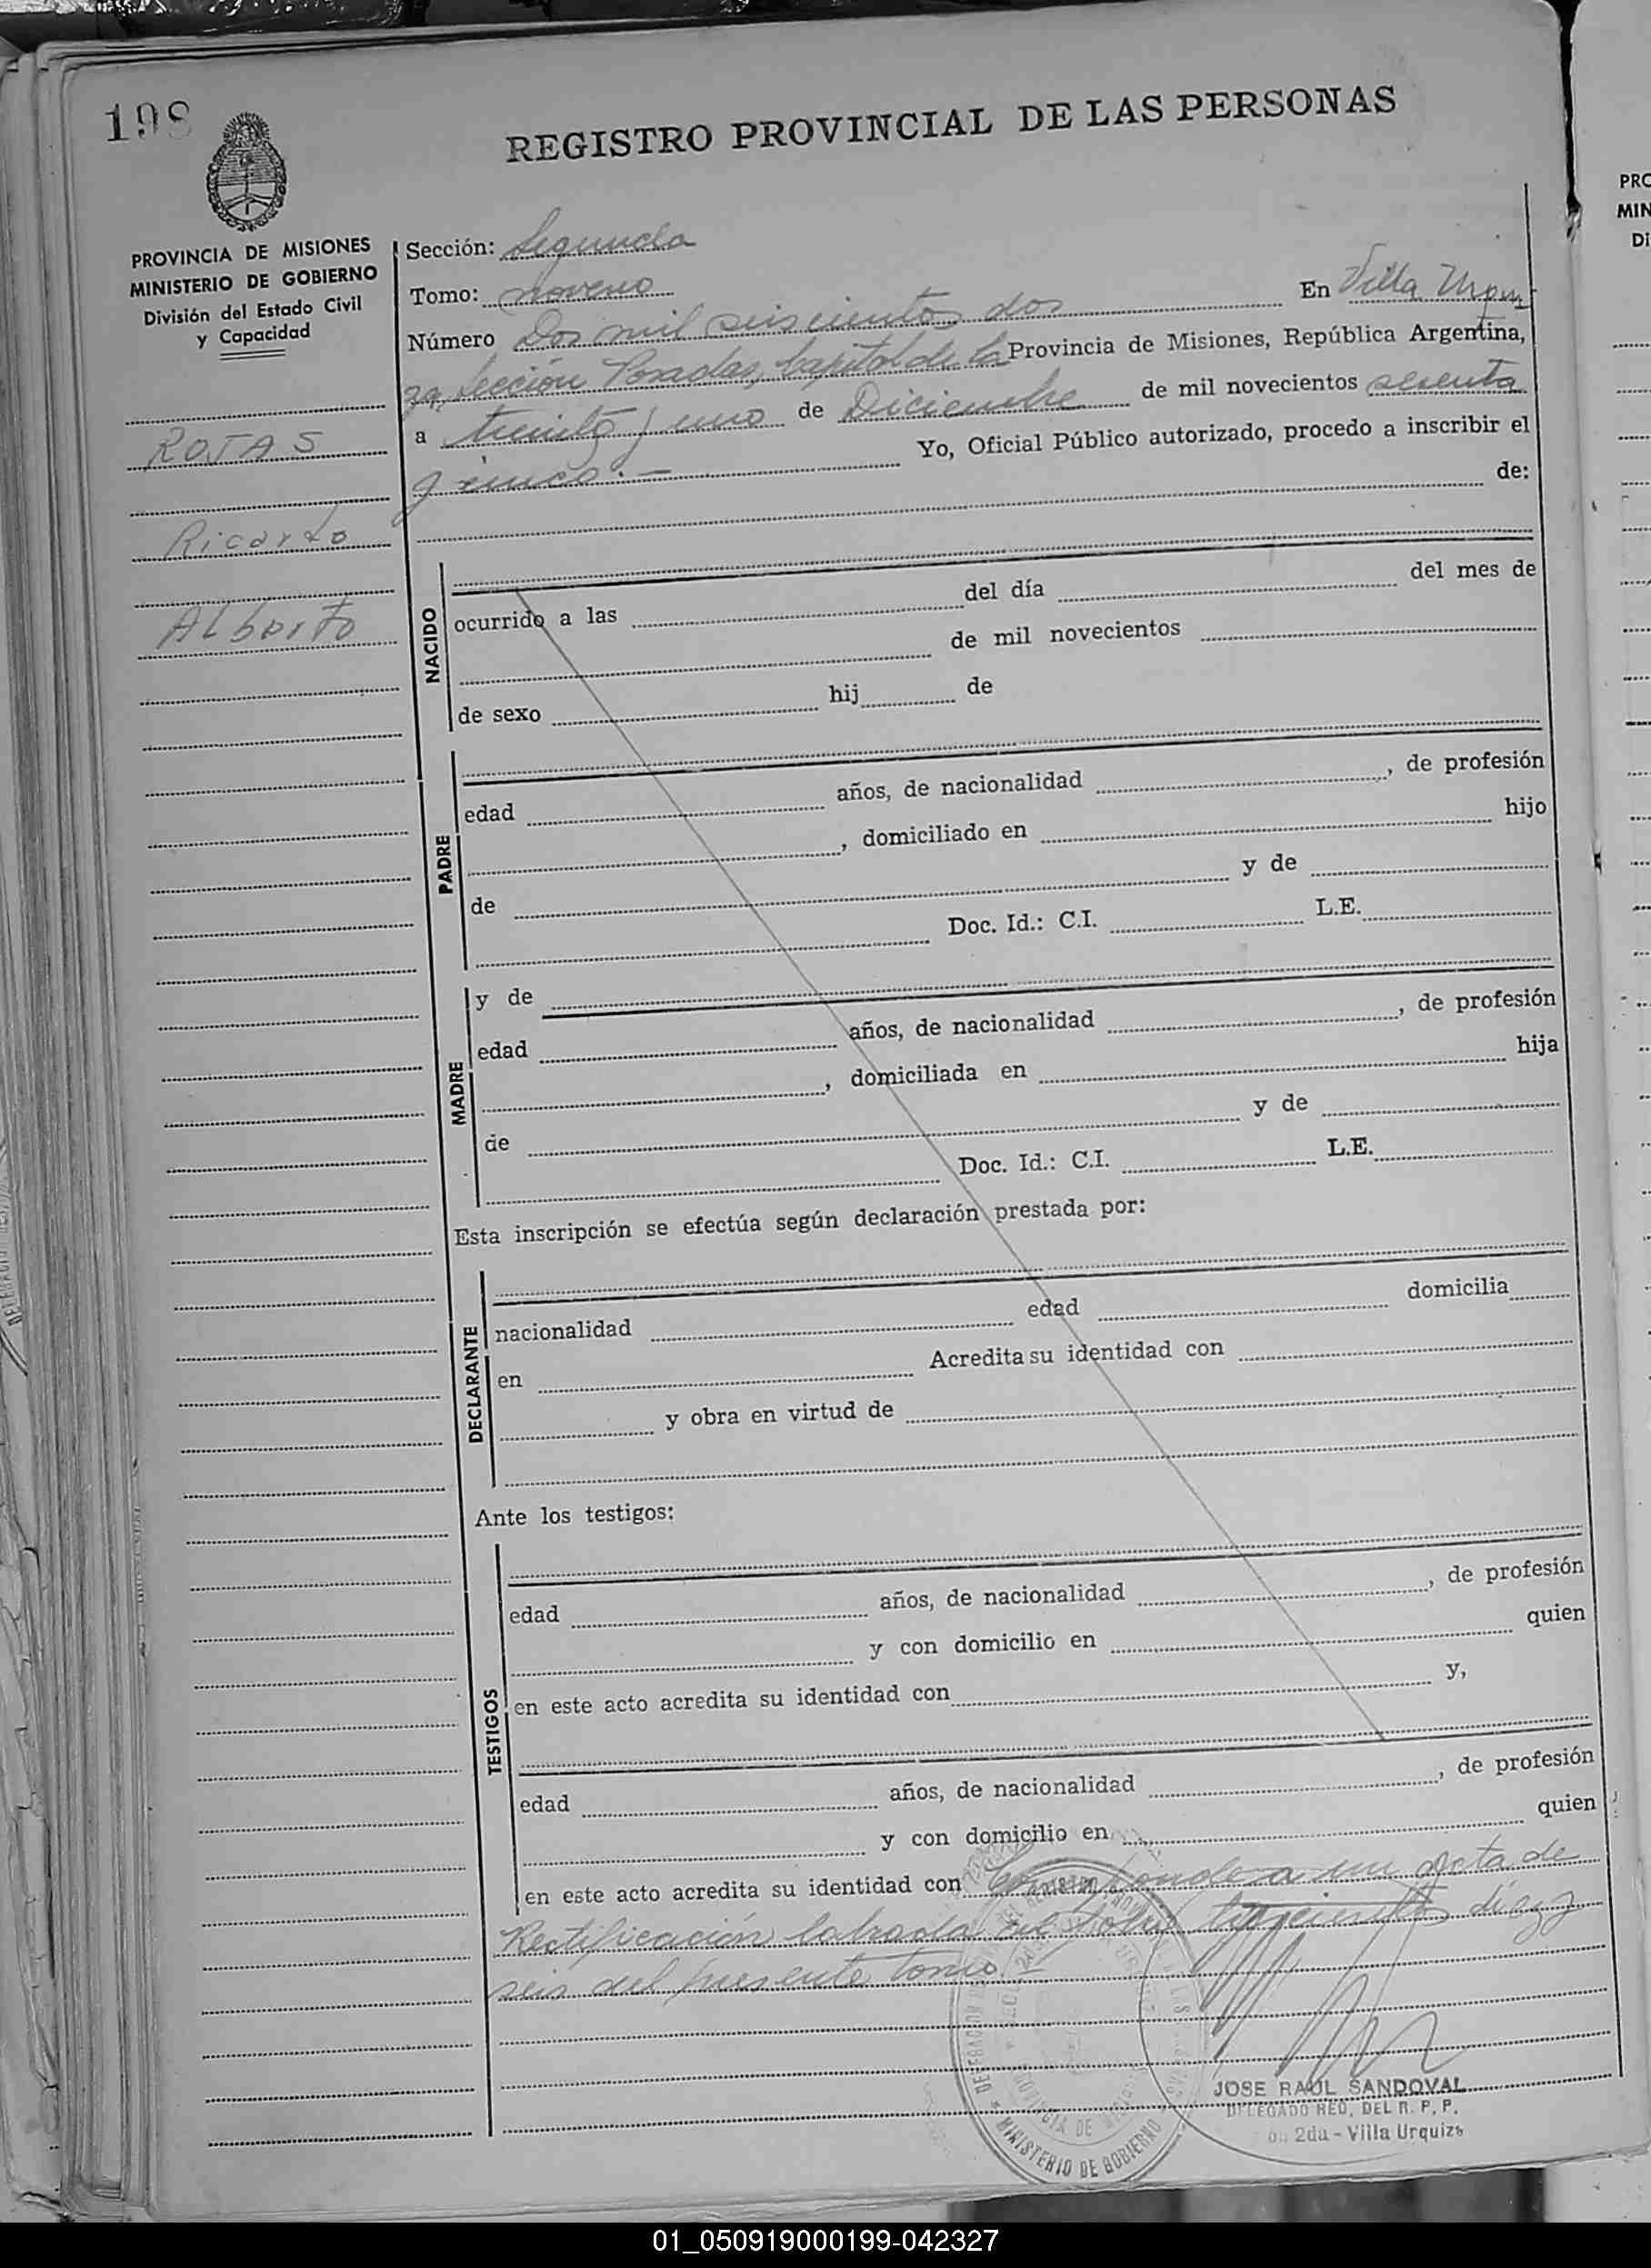 198
REGISTRO PROVINCIAL DE LAS PERSONAS
PROVINCIA DE MISIONES
MINISTERIO DE GOBIERNO
División del Estado Civil
y Capacidad
ROJAS
Ricardo
Alberto
Sección: Segunda
Tomo: noveno
Número Dos mil seiscientos dos En Villa Urqui
za, Sección Posadas, Capital de la Provincia de Misiones, República Argentina,
a treinta y uno de Diciembre de mil novecientos sesenta
y cinco.— Yo, Oficial Público autorizado, procedo a inscribir el
de:
NACIDO
ocurrido a las del día del mes de
de mil novecientos
de sexo hij de
PADRE
edad años, de nacionalidad , de profesión
, domiciliado en hijo
de y de
Doc. Id.: C.I. L.E.
MADRE
y de
edad años, de nacionalidad , de profesión
, domiciliada en hija
de y de
Doc. Id.: C.I. L.E.
Esta inscripción se efectúa según declaración prestada por:
DECLARANTE
nacionalidad edad domicilia
en Acredita su identidad con
y obra en virtud de
Ante los testigos:
TESTIGOS
edad años, de nacionalidad , de profesión
y con domicilio en quien
en este acto acredita su identidad con y,
edad años, de nacionalidad , de profesión
y con domicilio en quien
en este acto acredita su identidad con Corresponde a un acta de
Rectificación labrada al folio trescientos diez y
seis del presente tomo.
MINISTERIO DE GOBIERNO
PROVINCIA DE MISIONES
JOSE RAUL SANDOVAL
DELEGADO RED. DEL R. P. P.
2da - Villa Urquiza
PRO
MIN
Di
01_050919000199-042327